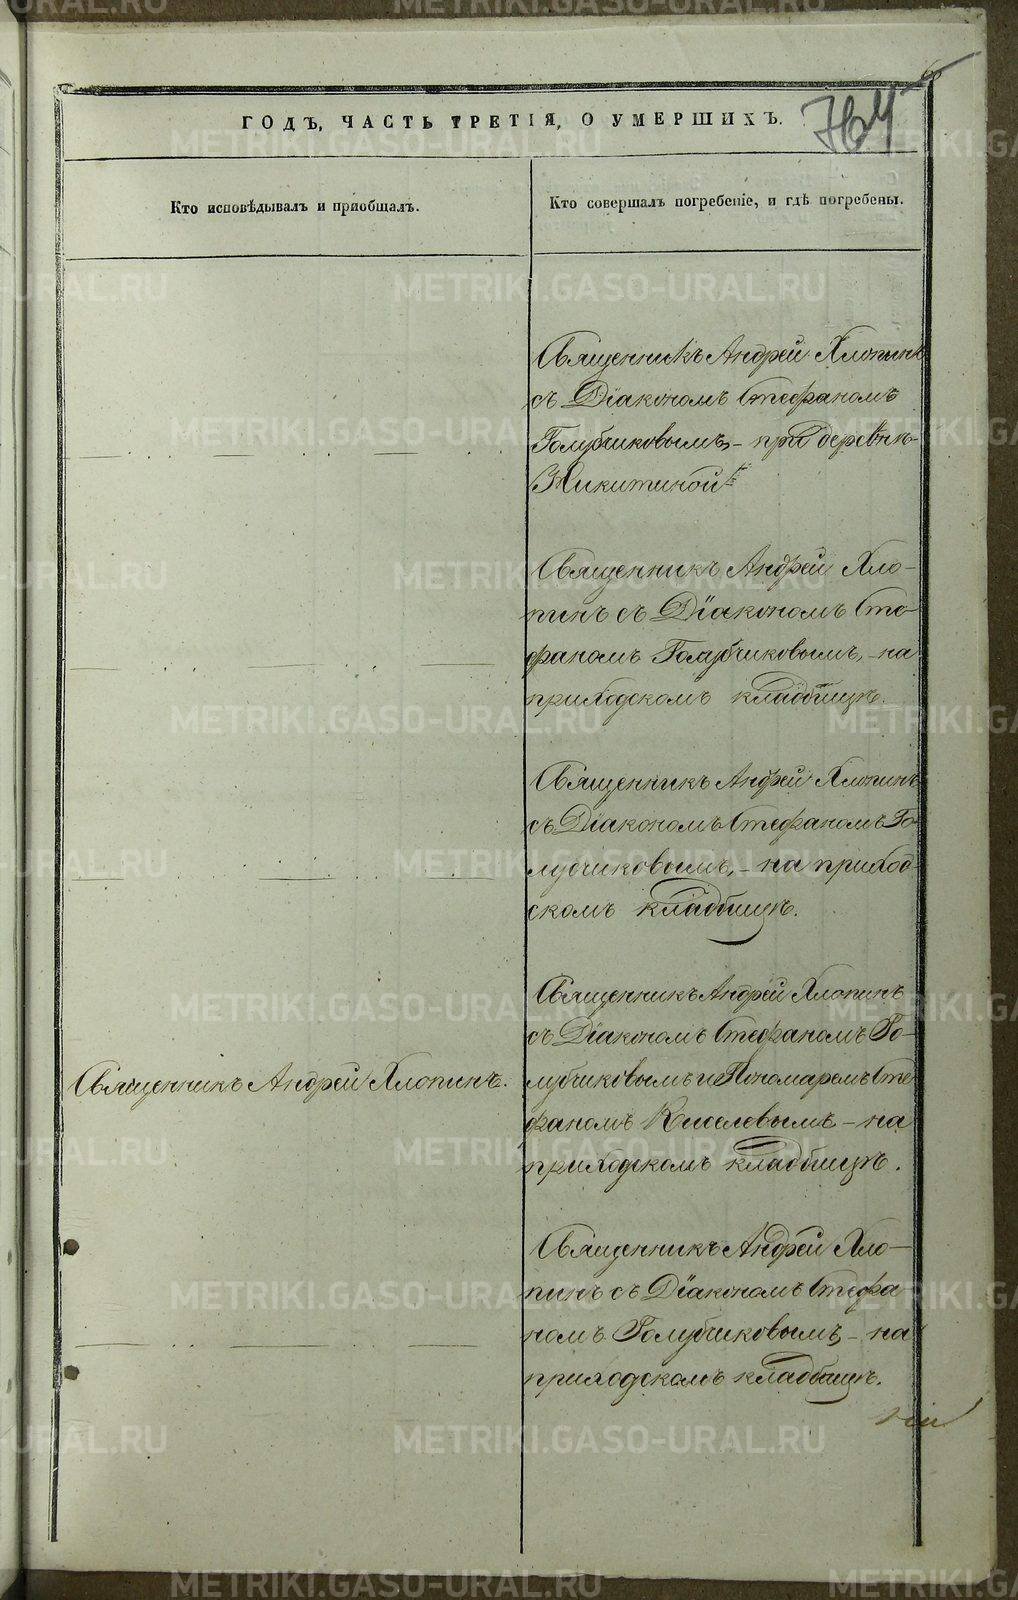 ГОДЪ, ЧАСТЬ ТРЕТІЯ, О УМЕРШИХЪ.
764
Кто исповѣдывалъ и пріобщалъ.
Кто совершалъ погребеніе, и гдѣ погребены.
Священникъ Андрей Хлопинъ
съ Діакономъ Стефаномъ
Голубчиковымъ, – при деревнѣ
Никитиной
Священникъ Андрей Хло-
пинъ съ Діакономъ Сте-
фаномъ Голубчиковымъ, – на
приходскомъ кладбищѣ.
Священникъ Андрей Хлопинъ
съ Діакономъ Стефаномъ Го-
лубчиковымъ, – на приход-
скомъ кладбищѣ.
Священникъ Андрей Хлопинъ.
Священникъ Андрей Хлопинъ
съ Діакономъ Стефаномъ Го-
лубчиковымъ и Пономаремъ Сте
фаномъ Киселевымъ – на
приходскомъ кладбищѣ.
Священникъ Андрей Хло-
пинъ съ Діакономъ Стефа
номъ Голубчиковымъ, – на
приходскомъ кладбищѣ.
METRIKI.GASO-URAL.RU